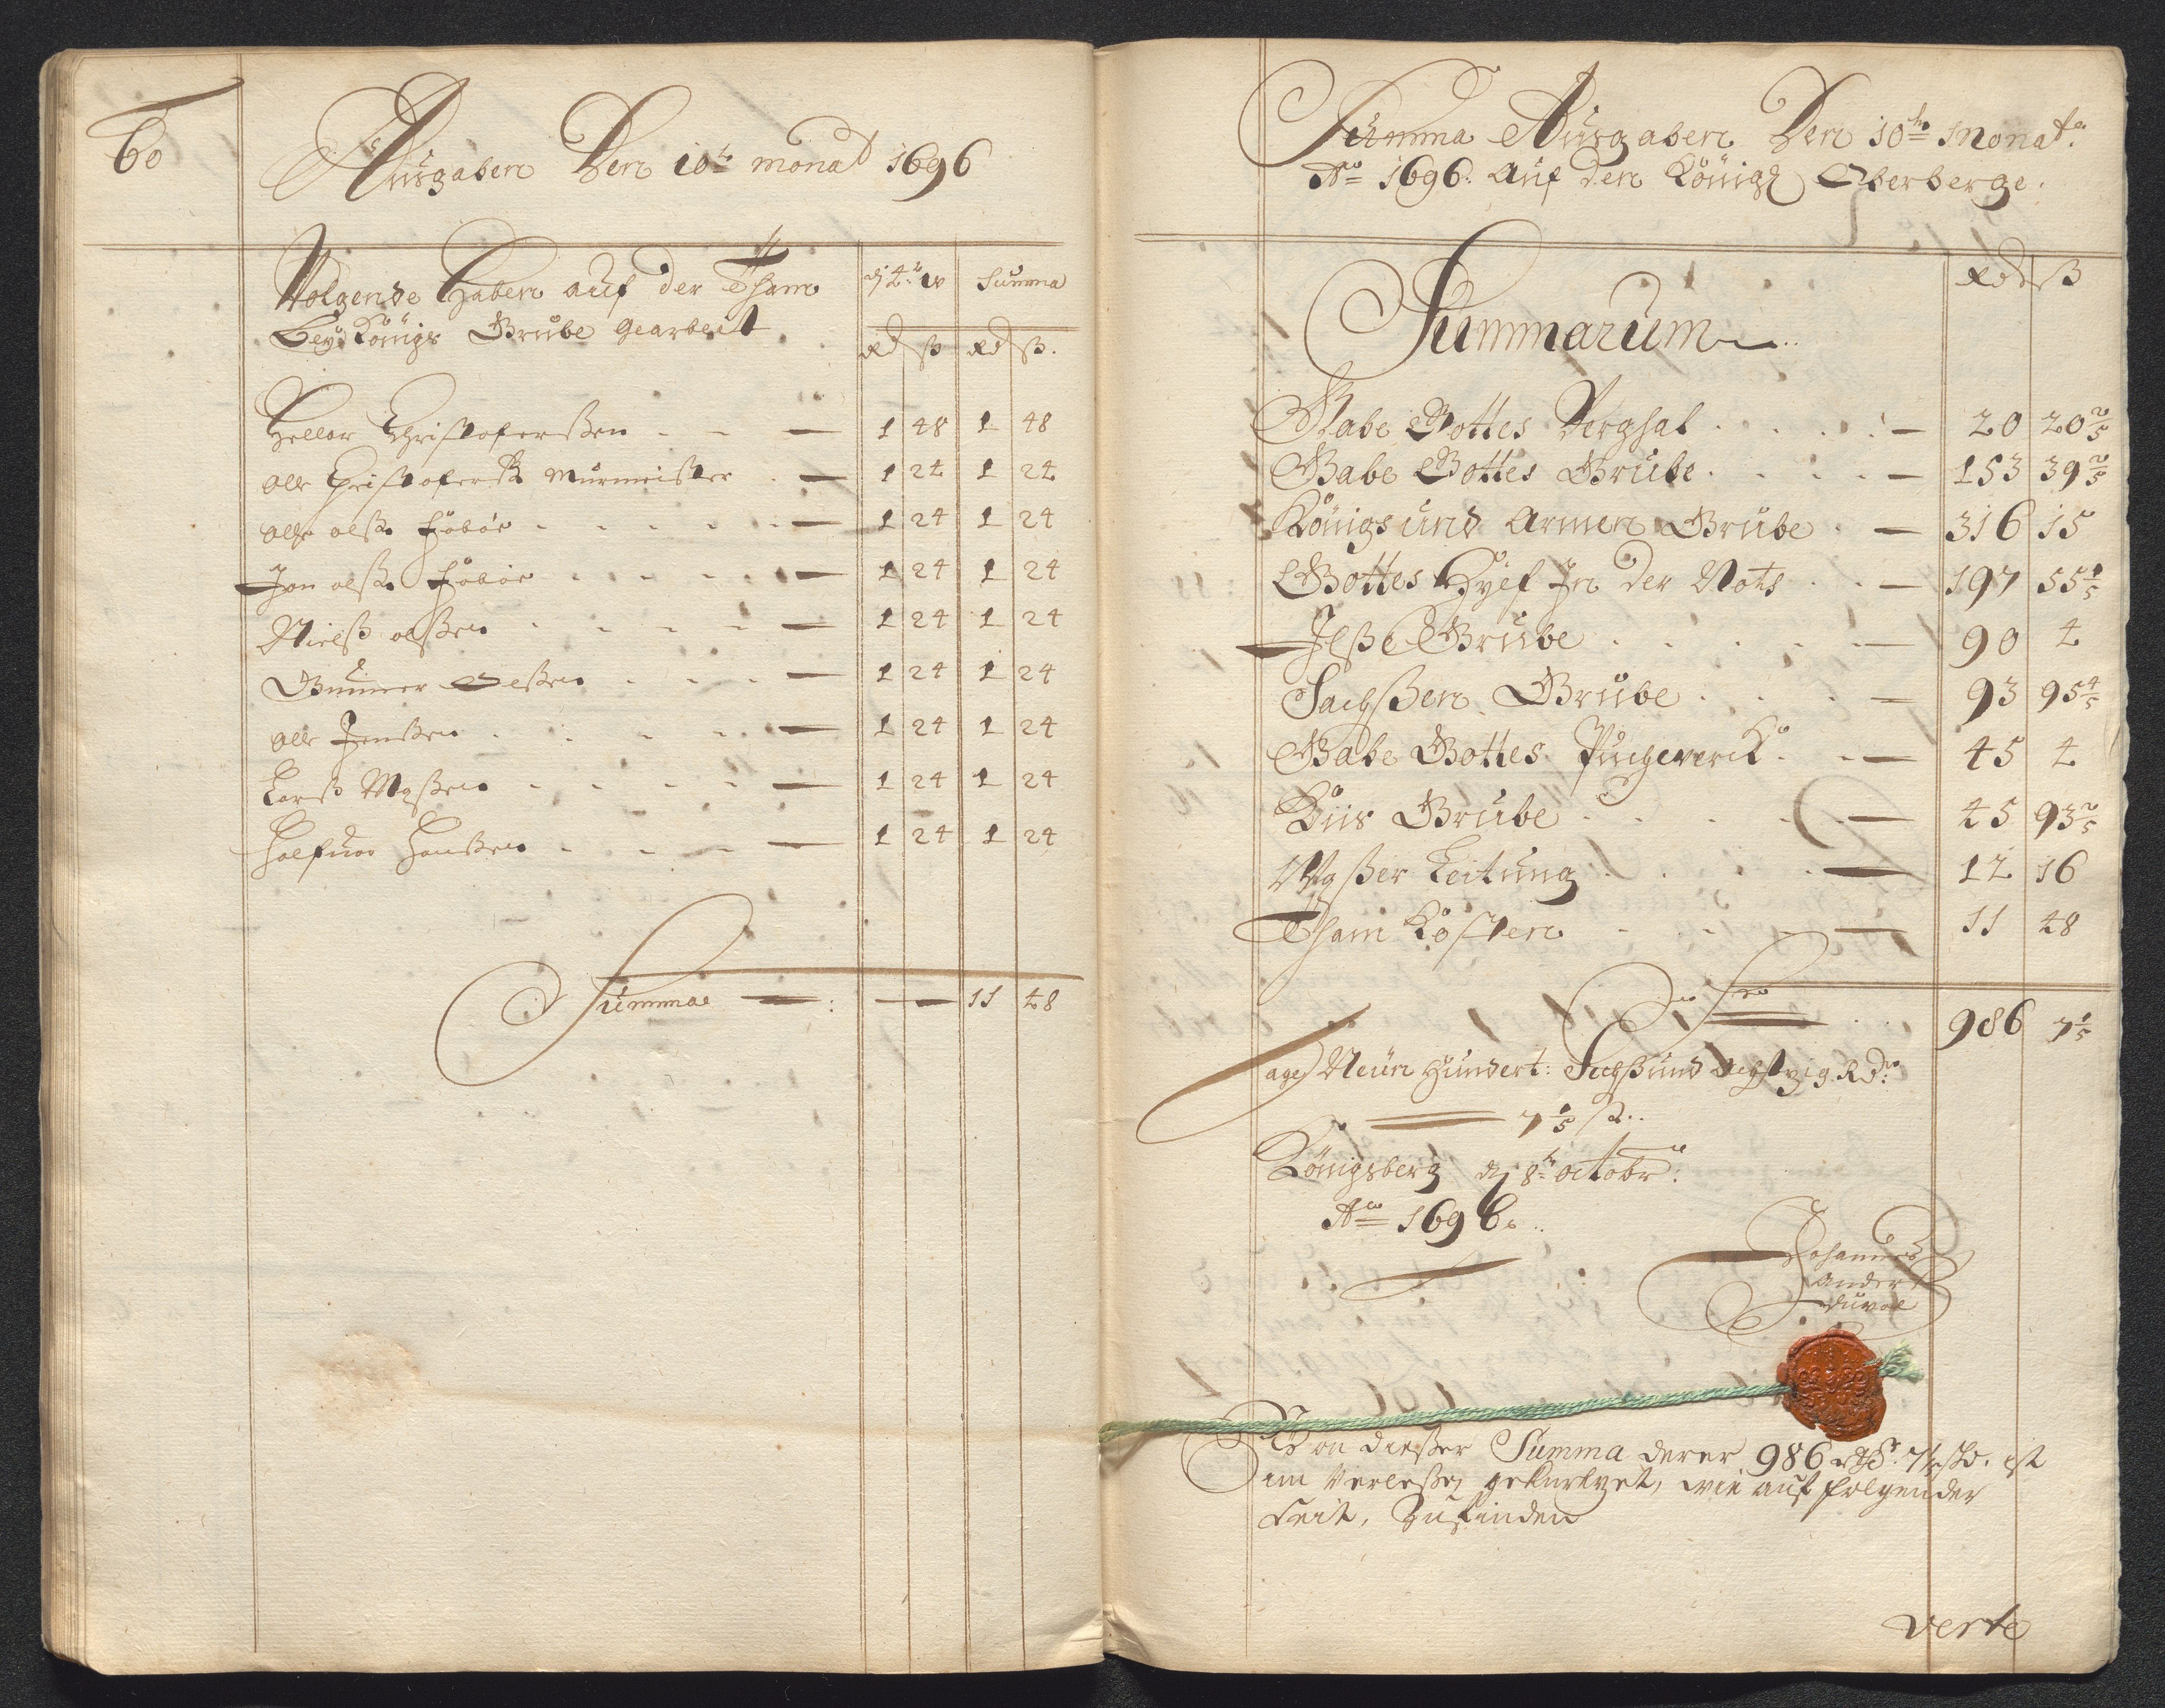 60
Ausgaben Den 10t monat 1696
Volgende Haben auf der Tham
Bey Königs Grube gearbeit
d 4t w Summa
Rd ß Rd ß.
Christoferßen - - — 1 48 1 48
olle Christoferß Murmeister - — 1 24 1 24
olle olß. - - - - — 1 24 1 24
Jon olß. - - - - — 1 24 1 24
Nielß olßen - - - - — 1 24 1 24
Gunner olßen - - - — 1 24 1 24
olle Jenßen - - - - — 1 24 1 24
Larß - - - - — 1 24 1 24
Halfuor Hanßen - - - — 1 24 1 24
Summa — : — 11 48
Summa Ausgaben Den 10tn Monat.
Ao 1696. auf den Königl Oberberge.
Rd ß
Summarum
Gabe Gottes Berghal . . . . — 20 20 2/5
Gabe Gottes Grube . . . . — 153 39 2/5
Königs und Armen Grube . — 316 15
Gottes Hylf In der Noht . . — 197 55 1/5
Ilße Grube . . . . . — 90 4
Sachßen Grube . . . — 93 95 4/5
Gabe Gottes Puchwerck . . — 45 4
Küs Grube . . . . . — 45 93 2/5
Waßer Leitung . . . . — 12 16
Tham Kosten - . - . — 11 48
986 7 1/5
age Neün Hundert: Sechßund achtzig Rd:
7 1/5 ß..
Königsberg d 8t octobr:
Ao 1696.
Johannes
Anders
Duval
Von dießer Summa derer 986 7 1/5 ß. ist
im Verleßen gekurtzet, wie auf folgender
Seit, Zufinden
verte